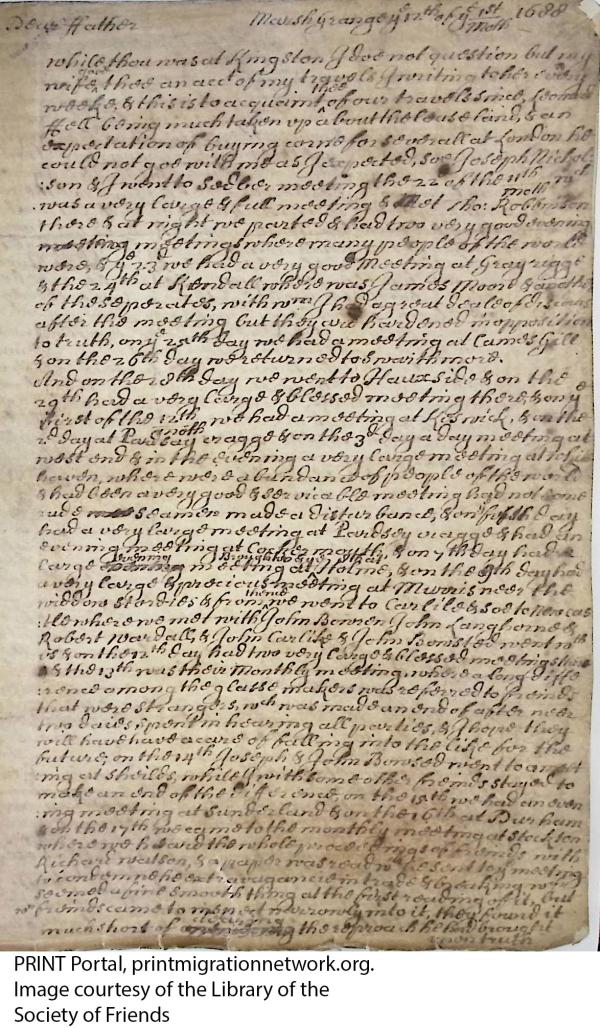 Dear ffather Marsh Grange ye 12th of ye 1st Moth 1688
while thou was at Kingston J doe not question but my
wife gave thee an acct of my travels J writing to her every
weeke, & this is to acquaint thee of our travels since, Leonard
ffell being much taken up about the lease land, & an
expectation of buying corne for severall at London he
could not goe with me as J expected, soe Joseph Nichol
:son & J went to Sedber meeting the 22 of the 11th moth wch
was a very large & full meeting & Met Tho: Robinson
there & at night we parted & had two very good evening
meetings where many people of the world
were, & ye 23 we had a very good Meeting at Grayrigge
& the 24th at Kendall where was James Moore & another
of the seperates, with wm J had a great deale of
after the meeting but they are hardened in opposition
to truth, on ye 25th day we had a meeting at Cames Gill
& on the 26th day we returned to swarthmore.
And on the 28th day we went to Hauxside & on the
29th had a very large & blessed meeting there, & on ye
first of the 12th moth we had a meeting at Keswick, & on the
2d day at Pardsay cragge & on the 3d day a day meeting at
west end & in the evening a very large meeting at white
haven, where were abundance of people of the world
& had been a very good & servicable meeting had not some
rude seamen made a disturbance, & on day
had a very large meeting at Pardsey cragge & had an
evening meeting at Cockermouth, & on 7th day had a
large meeting at Holme, & on the 9th day had
a very large & precious meeting at Murris near the
widdow Stordies & from thence we went to Carlile & soe to Newcas
:tle where we met with John Bowser John Langhorne &
Robert Wardall, & John Carlile & John Bowsted went with
us & on the 12th day had two very large & blessed meetings there
& the 13th was their Monthly meeting, where a long diffe
:rence among the glasse makers was referred to friends
that were strangers, wch was made an end of after near
two daies spent in hearing all parties, & J hope they
will have have a care of falling into the like for the
future, on the 14th Joseph & John Bowsed went to a meet
:ing at sheilds, while J with some other friends stayed to
make an end of the difference, on the 15th we had an even
:ing meeting at Sunderland & on the 16th at Durham
& on the 17th we came to the monthly meeting at stockton
where we heard the whole proceedings of friends with
Richard Watson, & a paper was read wch he sent to ye meeting
to condemne his extravagancie in trade & breaking wch
seemed a fine smooth thing at the first reading of it, but
wn friends came to narrowly into it, they found it
much short of the reproach he had brought
upon truth
PRINT Portal, printmigrationnetwork.org.
Image courtesy of the Library of the
Society of Friends